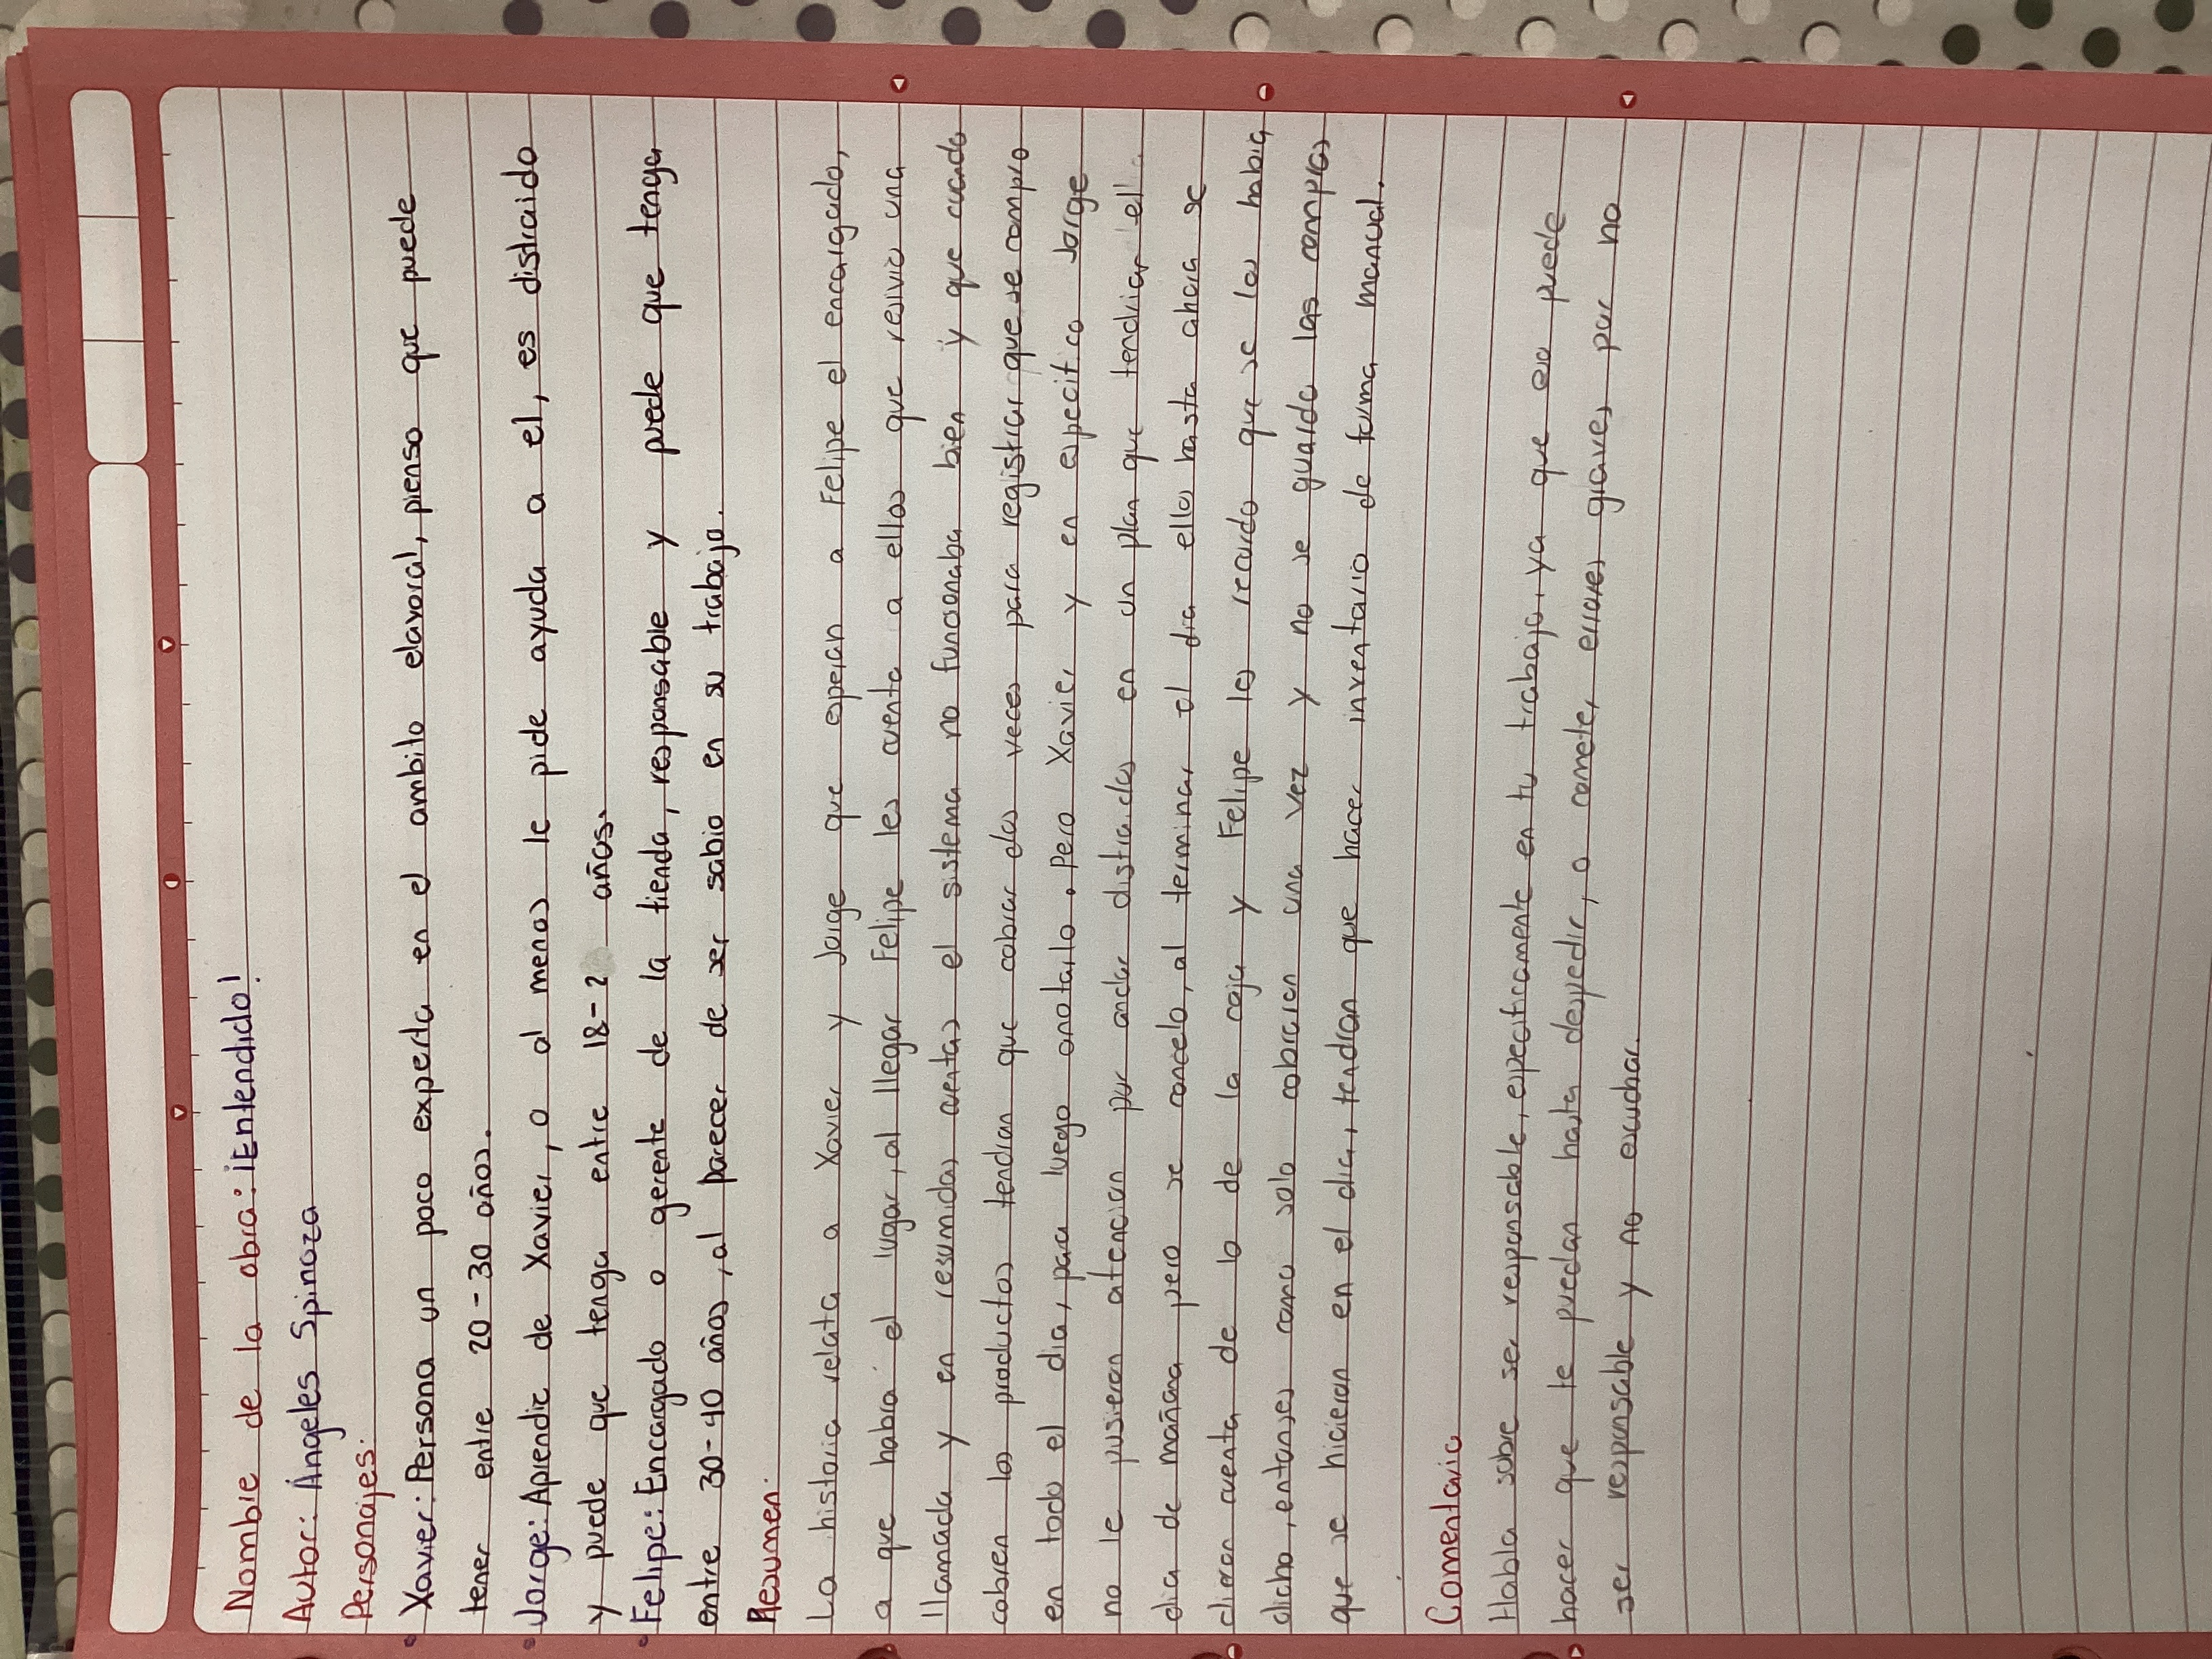 Nombre de la obra: ¡Entendido!
Autor: Ángeles Spinoza
Personajes:
• Xavier: Persona un poco experta en el ambito elavoral, pienso que puede
tener entre 20-30 años.
• Jorge: Aprendiz de Xavier, o al menos le pide ayuda a el, es distraido
y puede que tenga entre 18-2 años.
• Felipe: Encargado o gerente de la tienda, responsable y puede que tenga
entre 30-40 años, al parecer de ser sabio en su trabajo.
Resumen:
La historia relata a Xavier y Jorge que esperan a Felipe el encargado,
a que habra el lugar, al llegar Felipe les cuenta a ellos que resivio una
llamada y en resumidas cuentas el sistema no funsonaba bien y que cuando
cobren los productos tendran que cobrar dos veces para registrar que se compro
en todo el dia, para luego anotarlo. Pero Xavier y en especifico Jorge
no le pusieron atencion por andar distraidos en un plan que tendrian el
dia de mañana pero se cancelo, al terminar el dia ellos hasta ahora se
dieron cuenta de lo de la caja y Felipe les recordo que se los habia
dicho, entonses como solo cobraron una vez y no se guardo las compras
que se hicieron en el dia, tendran que hacer inventario de forma manual.
Comentario
Habla sobre ser responsable, especificamente en tu trabajo, ya que eso puede
hacer que te puedan hasta despedir, o cometer errores graves por no
ser responsable y no escuchar.